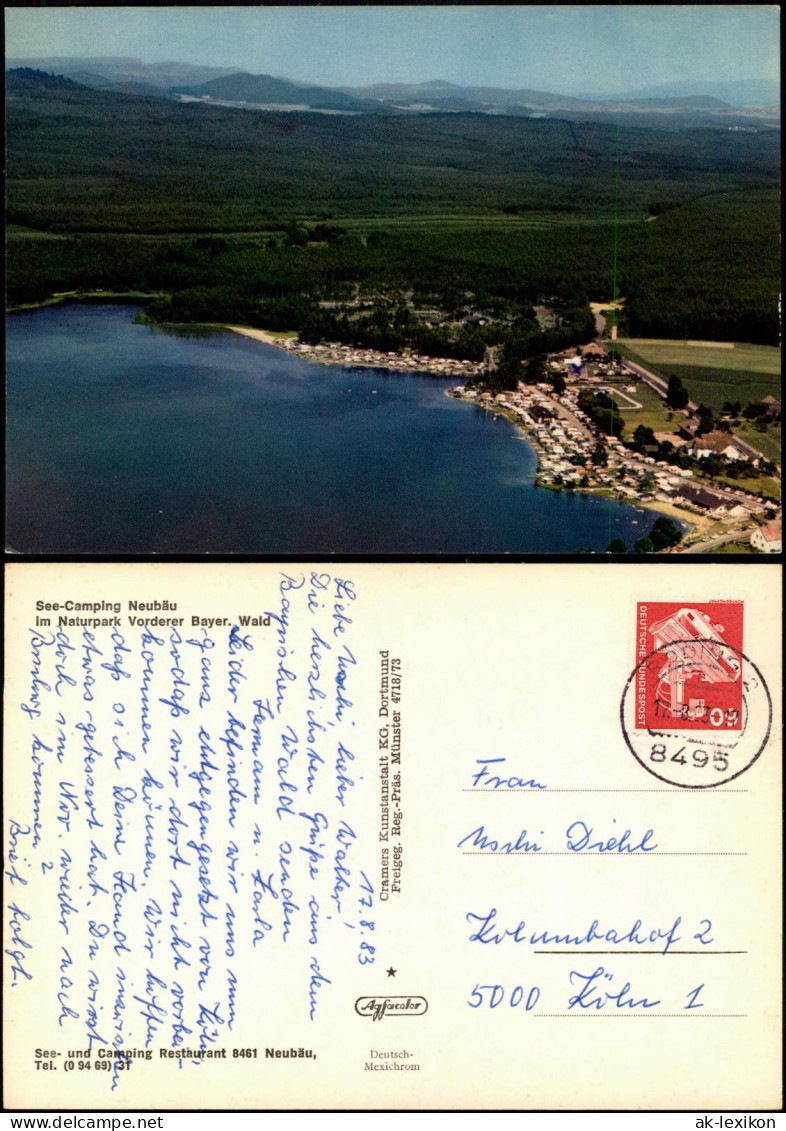 See-Camping Neubäu
im Naturpark Vorderer Bayer. Wald
17.8.83
Liebe Uschi, lieber Walter!
Die herzlichsten Grüße aus dem
Bayrischen Wald senden
Hermann u. Karla
Leider befinden wir uns nun
ganz entgegengesetzt von Köln,
sodaß wir dort nicht vorbei-
kommen können. Wir hoffen
daß sich Deine Hand inzwischen
etwas gebessert hat. Du wirst
doch im Nov. wieder nach
kommen?
Brief folgt.
See- und Camping Restaurant 8461 Neubäu,
Tel. (0 94 69) 31
Cramers Kunstanstalt KG. Dortmund
Freigeg. Reg.-Präs. Münster 4718/73
Agfacolor
Deutsch-
Mexichrom
DEUTSCHE BUNDESPOST
60
RODING 2
8495
Frau
Uschi Diehl
Kolumbahof 2
5000 Köln 1
www.ansichtskarten-lexikon.de
ak-lexikon